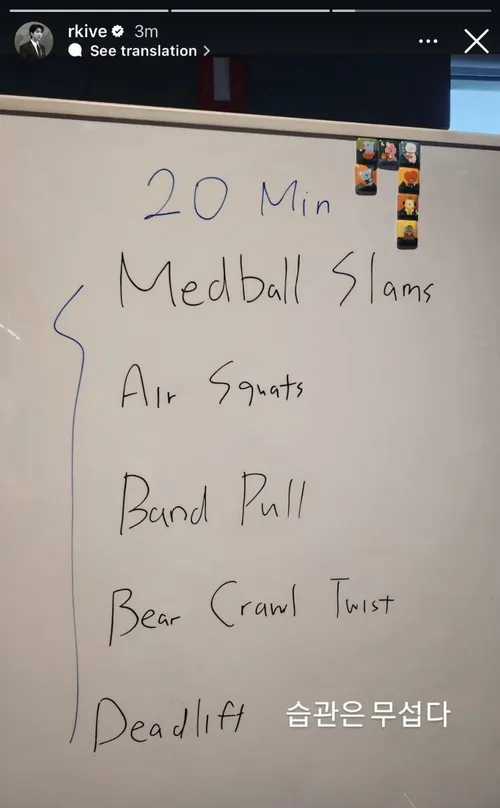 rkive 3m
See translation
20 Min
Medball Slams
Air Squats
Band Pull
Bear Crawl Twist
Deadlift
습관은 무섭다